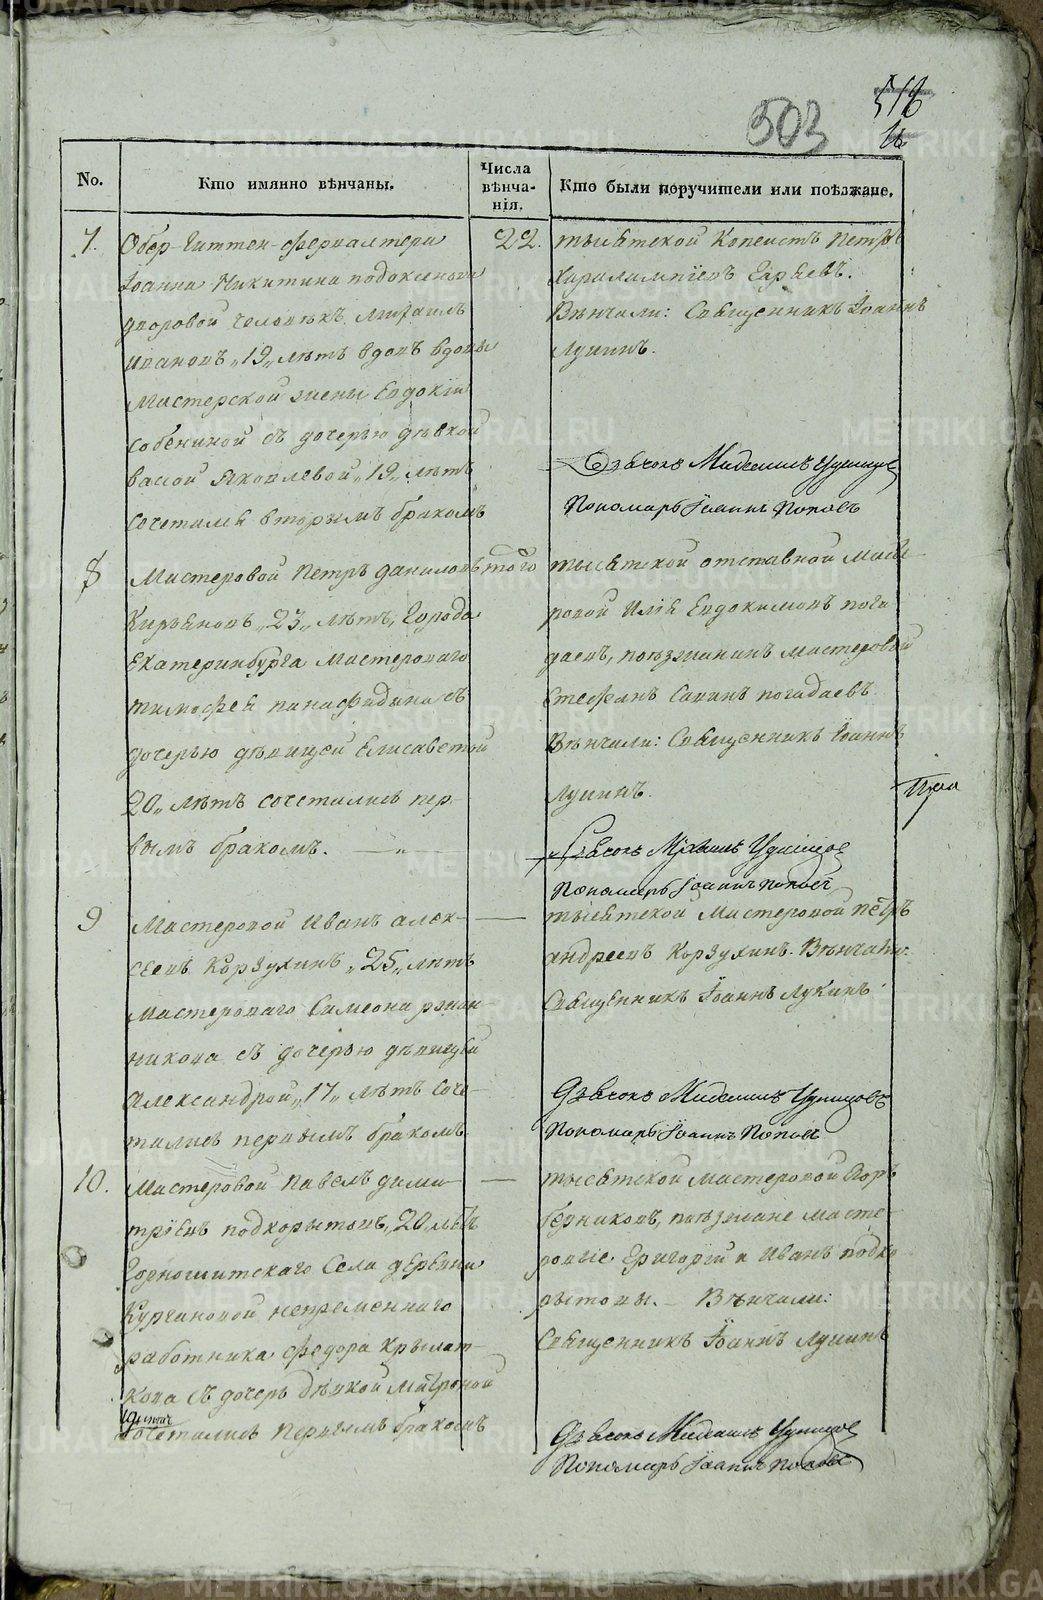 503
518
No.
Кто имянно вѣнчаны.
Числа
вѣнча-
нія.
Кто были поручители или поѣзжане.
7.
Обер-Гиттен-фервалтера
Іоанна Никитина
дворовой человѣкъ Михаилъ
Ивановъ „19„ лѣтъ вдовъ вдовы
Мастерской жены Евдокіи
Собениной съ дочерью дѣвкой
Вассой Яковлевой „19„ лѣтъ
сочетались вторымъ бракомъ
22.
тысѣтской Копеистъ Петръ
Харалампіевъ
Вѣнчали: Священникъ Іоаннъ
Лукинъ.
Дьячокъ Михаилъ
Пономарь Іоаннъ Поповъ
8
Мастеровой Петръ Даниловъ
Кирьяновъ „23„ лѣтъ, Города
Екатеринбурга Мастероваго
Тимофея Панафидина съ
дочерью дѣвицей Елисаветой
20„ лѣтъ сочетались пер-
вымъ бракомъ.
того
тысѣтской отставной Масте-
ровой Илія Евдокимовъ пога-
даевъ, поѣзжанинъ мастеровой
Стефанъ Савинъ погадаевъ
Вѣнчали: Священникъ Іоаннъ
Лукинъ.
Дьячокъ Михаилъ
Пономарь Іоаннъ Поповъ
9
Мастеровой Иванъ Алек-
сеевъ Корзухинъ „25„ лѣтъ
Мастероваго Симеона
никова съ дочерью дѣвицей
Александрой „17„ лѣтъ Соче-
тались первымъ бракомъ
тысѣтской Мастеровой Петръ
Андреевъ Корзухинъ. Вѣнчали:
Священникъ Іоаннъ Лукинъ
Дьячокъ Михаилъ
Пономарь Іоаннъ Поповъ
10.
Мастеровой Павелъ Дими-
тріевъ подкорытовъ, „20„ лѣтъ
Горнощитскаго Села деревни
Кургановой непременнаго
работника Федора Крылат-
кова съ дочерь дѣвкой Матроной
сочетались первымъ бракомъ
тысѣтской мастеровой
поѣзжане масте-
ровые Григорій и Иванъ подко-
рытовы. Вѣнчали:
Священникъ Іоаннъ Лукинъ
Дьячокъ Михаилъ
Пономарь Іоаннъ Поповъ
METRIKI.GASO-URAL.RU